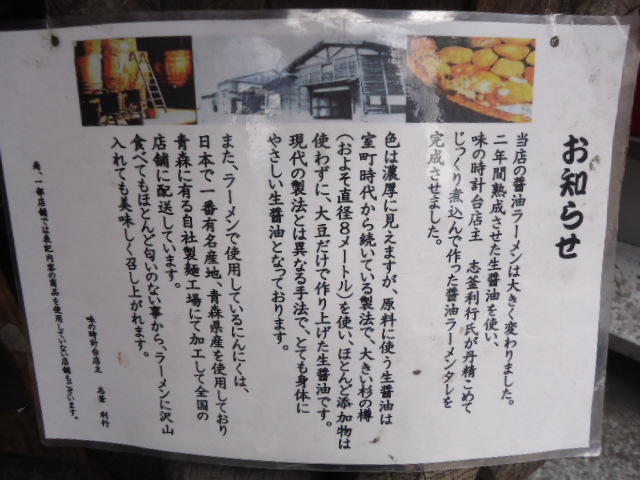 お知らせ
当店の醤油ラーメンは大きく変わりました。
二年間熟成させた生醤油を使い、
味の時計台店主　志釜利行氏が丹精こめて
じっくり煮込んで作った醤油ラーメンタレを
完成させました。
色は濃厚に見えますが、原料に使う生醤油は
室町時代から続いている製法で、大きい杉の樽
（およそ直径８メートル）を使い、ほとんど添加物は
使わずに、大豆だけで作り上げた生醤油です。
現代の製法とは異なる手法で、とても身体に
やさしい生醤油となっております。
また、ラーメンで使用しているにんにくは、
日本で一番有名産地、青森県産を使用しており
青森に有る自社製麺工場にて加工して全国の
店舗に配送しています。
食べてもほとんど匂いのない事から、ラーメンに沢山
入れても美味しく召し上がれます。
味の時計台店主　志釜　利行
尚、一部店舗では表記内容の商品を使用していない店舗もございます。